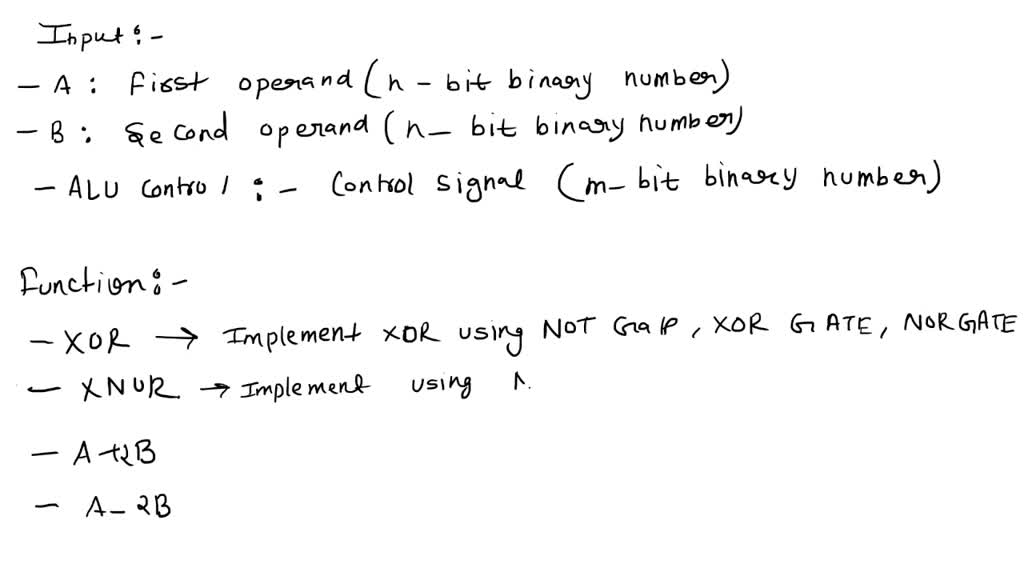 Input :-
- A : First operand (n - bit binary number)
- B : Second operand (n - bit binary number)
- ALU Control :- Control signal (m- bit binary number)
Function :-
- XOR → Implement XOR using NOT Gate, XOR GATE, NOR GATE
- XNOR. → Implement using N
- A+2B
- A-2B